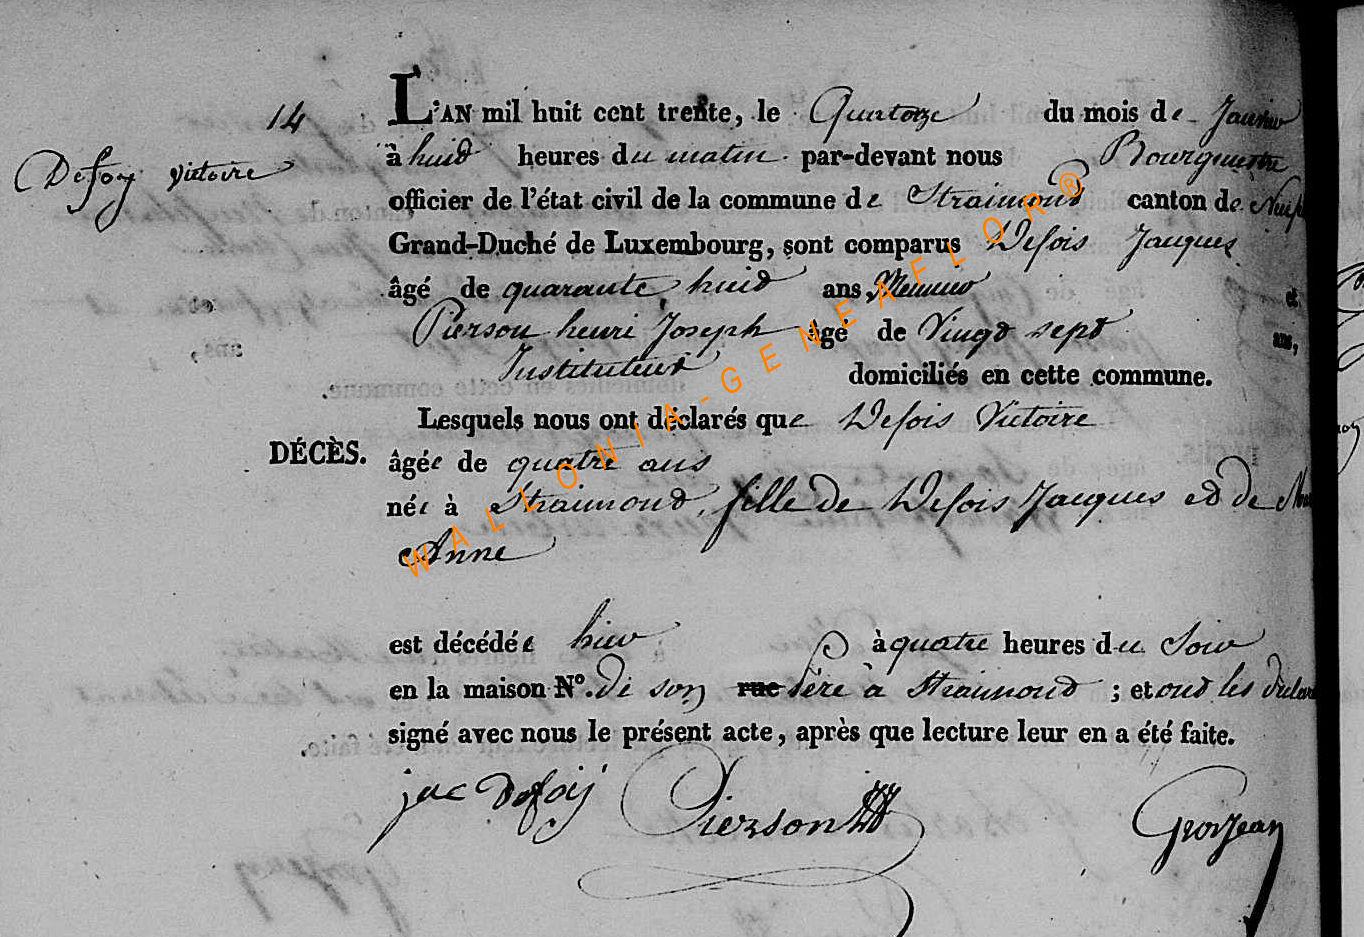 14
Defoy victoire
L'AN mil huit cent trente, le Quatorze du mois de Janvier
à huid heures du matin par-devant nous Bourgmestre
officier de l'état civil de la commune de Straimond canton de Neuf
Grand-Duché de Luxembourg, sont comparus Defois Jacques
âgé de quarante huid ans, et
Pierson henri Joseph âgé de Vingd sept ans,
Instituteur domiciliés en cette commune.
Lesquels nous ont déclarés que Defois Victoire
DÉCÈS.
âgée de quatre ans
née à Straimond, fille de Defois Jacques ed de
Anne
est décédée hier à quatre heures du Soir
en la maison N°. de son rue Père à Straimond ; et ond les déclar
signé avec nous le présent acte, après que lecture leur en a été faite.
jac Defoij Pierson HJ Grosjean
WALLONIA-GENEAFLOR®